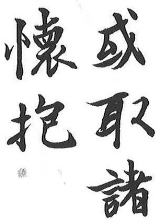 或取諸
懷抱